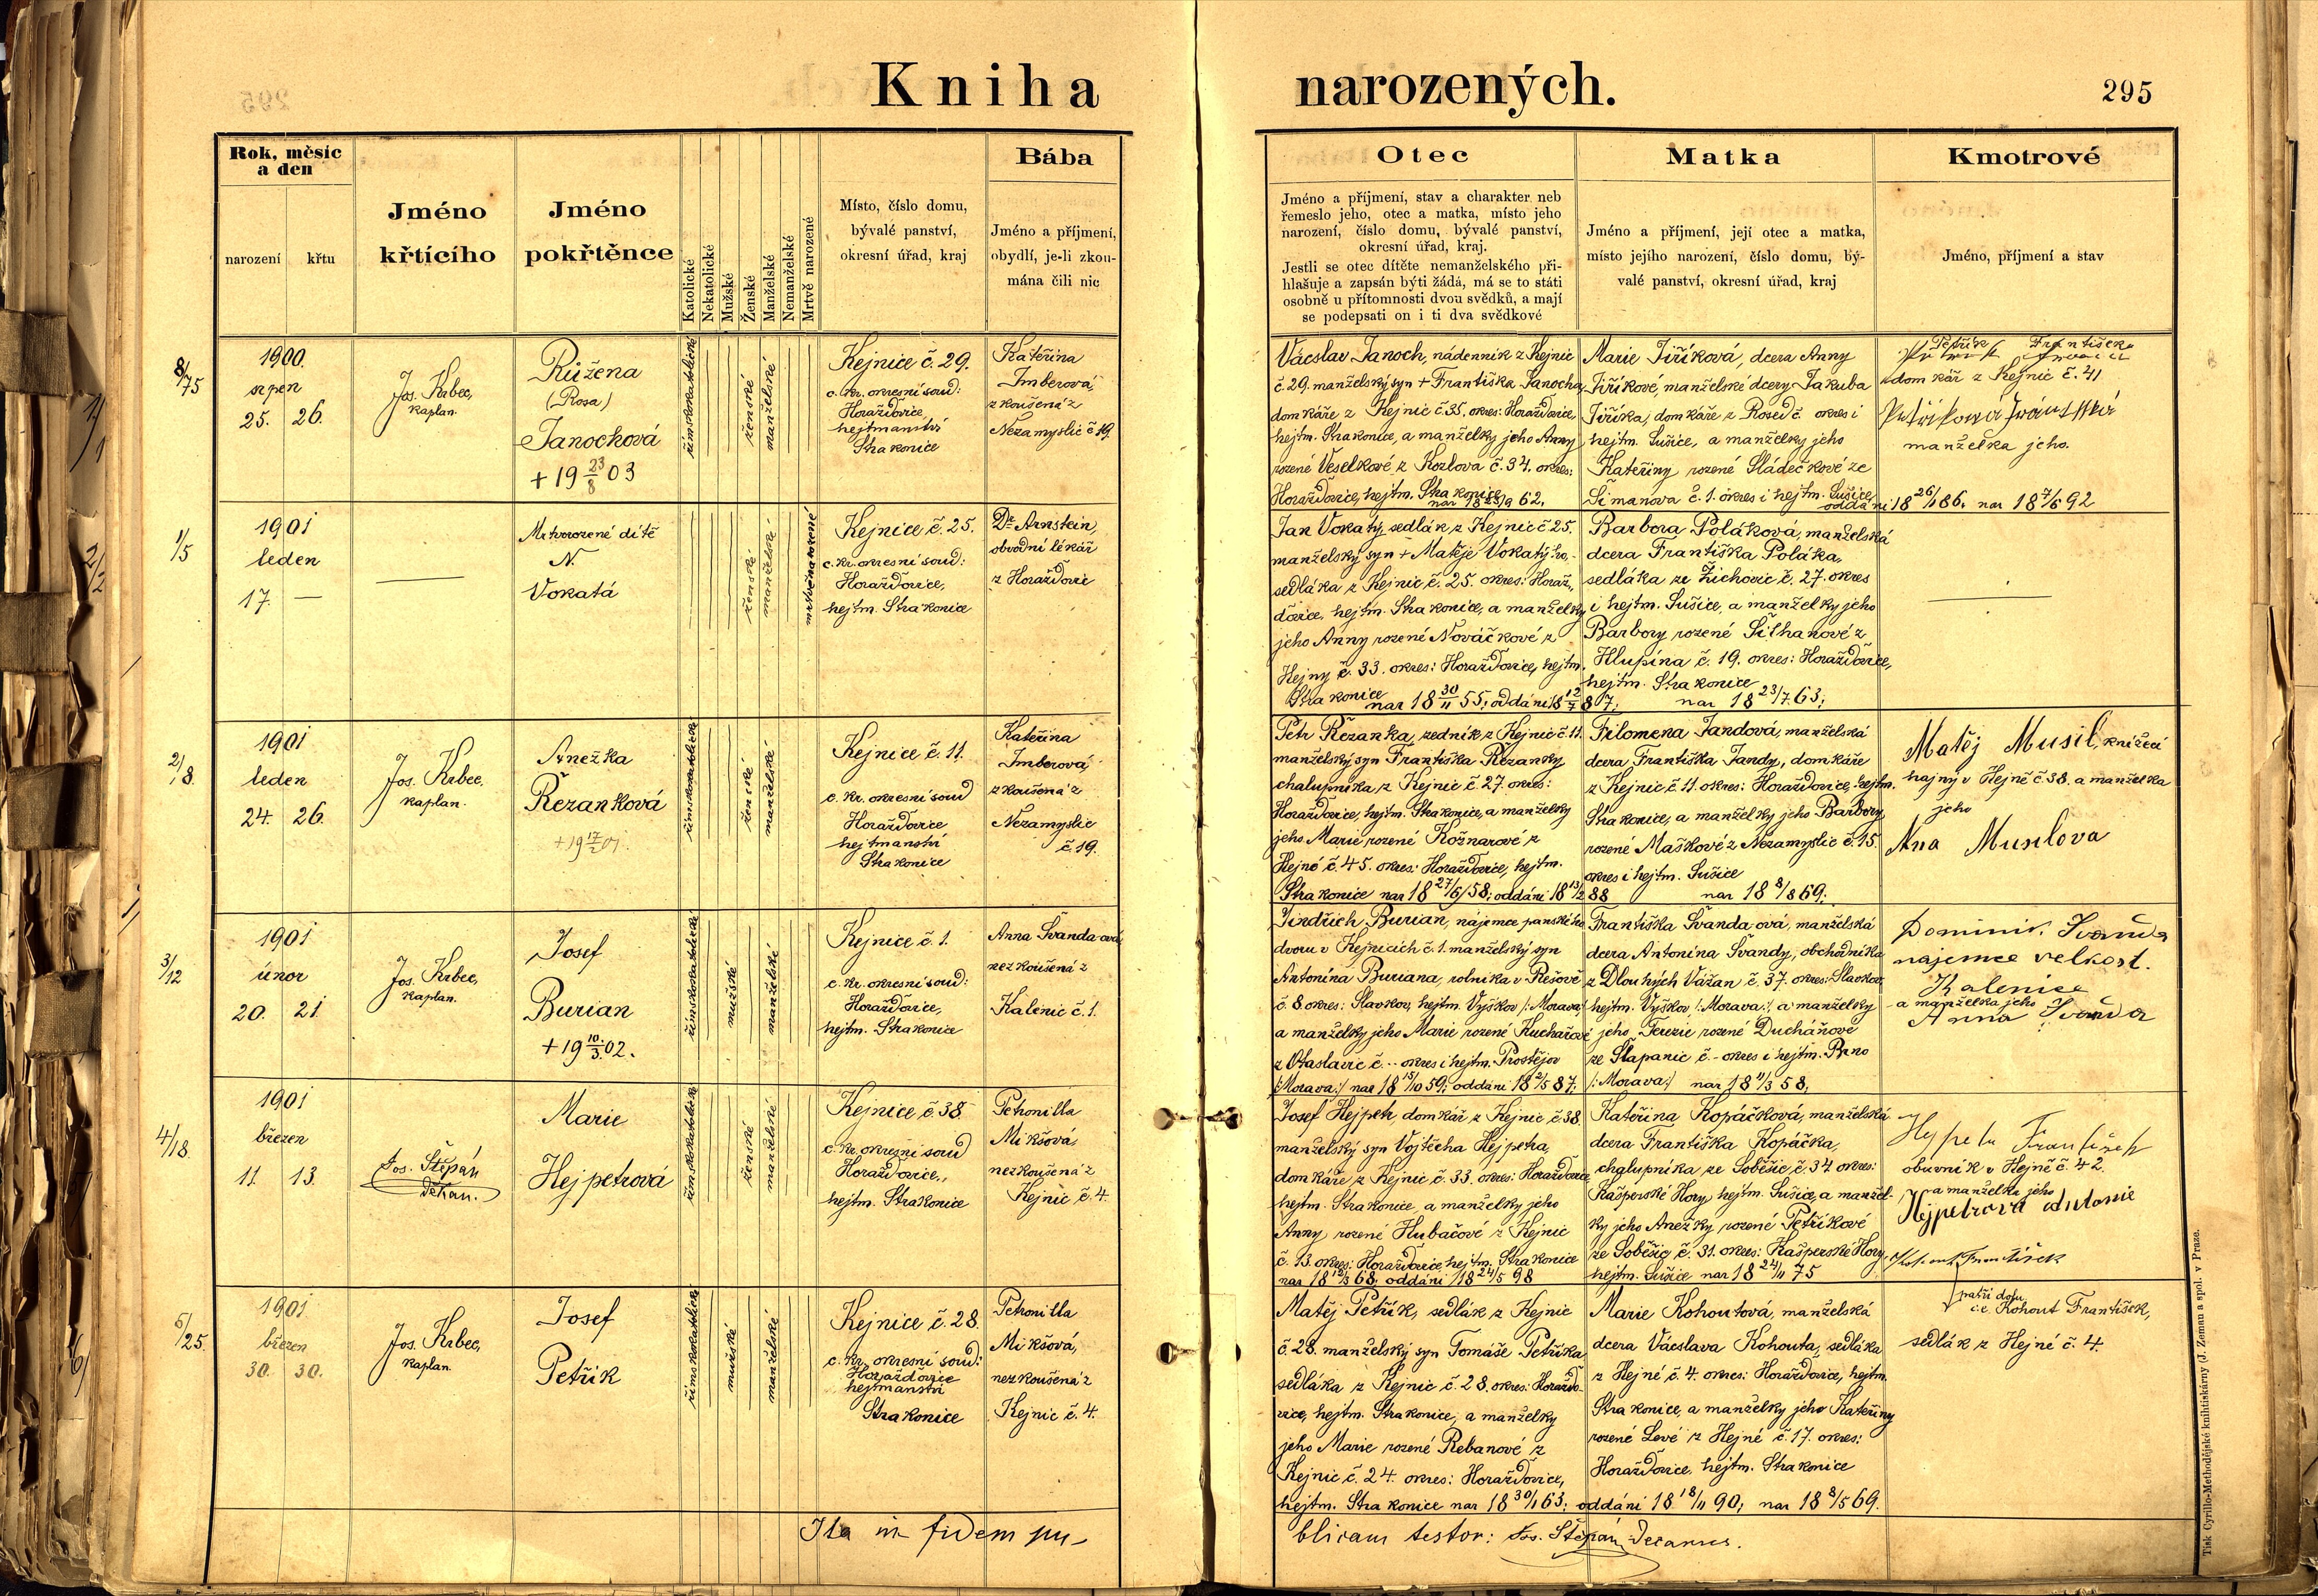 Kniha narozených.
295
Rok, měsíc a den
narození
křtu
Jméno křtícího
Jméno pokřtěnce
Katolické
Nekatolické
Mužské
Ženské
Manželské
Nemanželské
Mrtvě narozené
Místo, číslo domu,
bývalé panství,
okresní úřad, kraj
Bába
Jméno a příjmení,
obydlí, je-li zkou-
mána čili nic
Otec
Jméno a příjmení, stav a charakter neb
řemeslo jeho, otec a matka, místo jeho
narození, číslo domu, bývalé panství,
okresní úřad, kraj.
Jestli se otec dítěte nemanželského při-
hlašuje a zapsán býti žádá, má se to státi
osobně u přítomnosti dvou svědků, a mají
se podepsati on i ti dva svědkové
Matka
Jméno a příjmení, její otec a matka,
místo jejího narození, číslo domu, bý-
valé panství, okresní úřad, kraj
Kmotrové
Jméno, příjmení a stav
8/75
1900.
srpen
25. 26.
Jos. Krbec,
kaplan.
Růžena
(Rosa)
Janochová
+ 19 23/8 03
římskokatolické
ženské
manželské
Kejnice č. 29.
c. kr. okresní soud:
Horažďovice,
hejtmanství
Strakonice
Kateřina
Imberová,
zkoušená z
Nezamyslic č 19.
Vácslav Janoch, nádenník z Kejnic
č. 29. manželský syn + Františka Janocha,
domkáře z Kejnic č. 35. okres: Horažďovice,
hejtm. Strakonice, a manželky jeho Anny
rozené Veselkové z Kozlova č. 34. okres:
Horažďovice, hejtm. Strakonice
Marie Jiříková, dcera Anny
Jiříkové, manželské dcery Jakuba
Jiříka, domkáře z Rosed č. okres i
hejtm. Sušice, a manželky jeho
Kateřiny rozené Sládečkové ze
Šimanova č. 1. okres i hejtm. Sušice,
oddáni 18 26/1 86. nar 18 7/6 92
Petřík František
domkář z Kejnic č. 41
manželka jeho.
1/5
1901
leden
17. —
Mrtvorozené dítě
N.
Vokatá
ženské
manželské
mrtvě narozené
Kejnice č. 25.
c. kr. okresní soud:
Horažďovice,
hejtm. Strakonice
Dr. Arnstein,
obvodní lékař
z Horažďovic
Jan Vokatý, sedlák z Kejnic č 25.
manželský syn + Matěje Vokatýho,
sedláka z Kejnic č. 25. okres: Horaž-
ďovice, hejtm. Strakonice, a manželky
jeho Anny rozené Nováčkové z
Hejny č. 33. okres: Horažďovice, hejtm.
Strakonice
nar 18 30/11 55; oddáni 18 12/7 87;
Barbora Poláková, manželská
dcera Františka Poláka,
sedláka ze Žichovic č. 27. okres
i hejtm. Sušice, a manželky jeho
Barbory rozené Šilhanové z
Hlupína č. 19. okres: Horažďovice,
hejtm. Strakonice
nar 18 23/7 63;
2/8
1901
leden
24. 26.
Jos. Krbec,
kaplan.
Anežka
Řezanková
+ 19 17/2 01
římskokatolické
ženské
manželské
Kejnice č. 11.
c. kr. okresní soud
Horažďovice
hejtmanství
Strakonice
Kateřina
Imberová,
zkoušená z
Nezamyslic
č. 19.
Petr Řezanka, zedník z Kejnic č. 11.
manželský syn Františka Řezanky
chalupníka z Kejnic č. 27. okres:
Horažďovice, hejtm. Strakonice, a manželky
jeho Marie rozené Kožnarové z
Hejné č. 45. okres: Horažďovice, hejtm.
Strakonice nar 18 27/6 58; oddáni 18 13/2 88
Filomena Jandová, manželská
dcera Františka Jandy, domkáře
z Kejnic č 11. okres: Horažďovice, hejtm.
Strakonice, a manželky jeho Barbory,
rozené Maškové z Nezamyslic č. 15.
okres i hejtm. Sušice
nar 18 8/8 69;
Matěj Musil, knížecí
hajný v Hejné č 38. a manželka
jeho
Ana Musilova
3/12
1901
únor
20. 21
Jos. Krbec,
kaplan.
Josef
Burian
+ 19 10/3 02.
římskokatolické
mužské
manželské
Kejnice č. 1.
c. kr. okresní soud:
Horažďovice,
hejtm. Strakonice
Anna Švandaová
nezkoušená z
Kalenic č. 1.
Jindřich Burian, nájemce panského
dvoru v Kejnicích č. 1. manželský syn
Antonína Buriana, rolníka v Rešově
č. 8 okres: Slavkov, hejtm. Vyškov /:Morava:/
a manželky jeho Marie rozené Kuchařové
z Otaslavic č. -- okres i hejtm. Prostějov
/:Morava:/ nar 18 15/10 59; oddáni 18 2/5 87;
Františka Švandaová, manželská
dcera Antonína Švandy, obchodníka
z Dlouhých Vážan č. 37. okres: Slavkov,
hejtm. Vyškov, /:Morava:/, a manželky
jeho Terezie rozené Ducháňové
ze Šlapanic č. - okres i hejtm. Brno
/:Morava:/ nar 18 11/3 58;
Dominik Švanda
nájemce velkost.
Kalenice
a manželka jeho
Anna Švanda
4/18
1901
březen
11. 13.
Jos. Štěpán
děkan.
Marie
Hejpetrová
římskokatolické
ženské
manželské
Kejnice, č. 38.
c. kr. okresní soud
Horažďovice,
hejtm. Strakonice
Petronilla
Mikšová,
nezkoušená z
Kejnic č. 4.
Josef Hejpetr, domkář z Kejnic č 38.
manželský syn Vojtěcha Hejpetra,
domkáře z Kejnic č. 33. okres: Horažďovice,
hejtm. Strakonice, a manželky jeho
Anny rozené Hubačové z Kejnic
č. 13. okres: Horažďovice, hejtm. Strakonice
nar 18 12/3 68; oddáni 18 24/5 98
Kateřina Kopáčková, manželská
dcera Františka Kopáčka,
chalupníka ze Soběšic č. 34 okres:
Kašperské Hory, hejtm. Sušice, a manžel-
ky jeho Anežky rozené Petříkové
ze Soběšic č. 31. okres: Kašperské Hory,
hejtm. Sušice nar 18 24/11 75
Hejpetr František
obuvník v Hejné č. 42.
a manželka jeho
Hejpetrova Antonie
5/25.
1901
březen
30. 30.
Jos. Krbec,
kaplan.
Josef
Petřík
římskokatolické
mužské
manželské
Kejnice č. 28.
c. kr. okresní soud:
Horažďovice
hejtmanství
Strakonice
Petronilla
Mikšová,
nezkoušená z
Kejnic č. 4.
Matěj Petřík, sedlák z Kejnic
č. 28. manželský syn Tomáše Petříka
sedláka z Kejnic č. 28. okres: Horažďo-
vice, hejtm. Strakonice, a manželky
jeho Marie rozené Rebanové z
Kejnic č. 24. okres: Horažďovice,
hejtm. Strakonice nar 18 30/1 63; oddáni 18 18/11 90;
Marie Kohoutová, manželská
dcera Vácslava Kohouta, sedláka
z Hejné č. 4. okres: Horažďovice, hejtm.
Strakonice, a manželky jeho Kateřiny
rozené Levé z Hejné č. 17. okres:
Horažďovice, hejtm. Strakonice
nar 18 8/5 69.
Kohout František
patří dolů
i.e. Kohout František,
sedlák z Hejné č. 4.
Ita in fidem pu-
blicam testor: Jos. Štěpán Decanus.
Tisk Cyrillo-Methodějské knihtiskárny (J. Zeman a spol. v Praze.